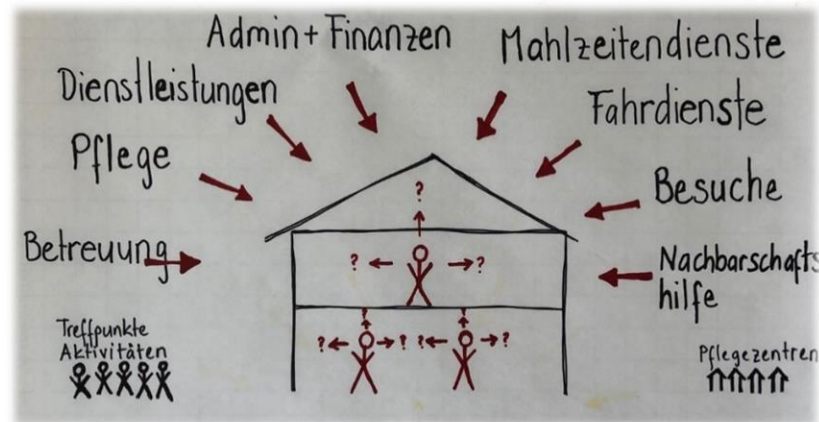 Admin + Finanzen
Mahlzeitendienste
Dienstleistungen
Fahrdienste
Pflege
Besuche
Betreuung
Nachbarschafts
hilfe
Treffpunkte
Aktivitäten
Pflegezentren
?
? ?
? ? ? ?